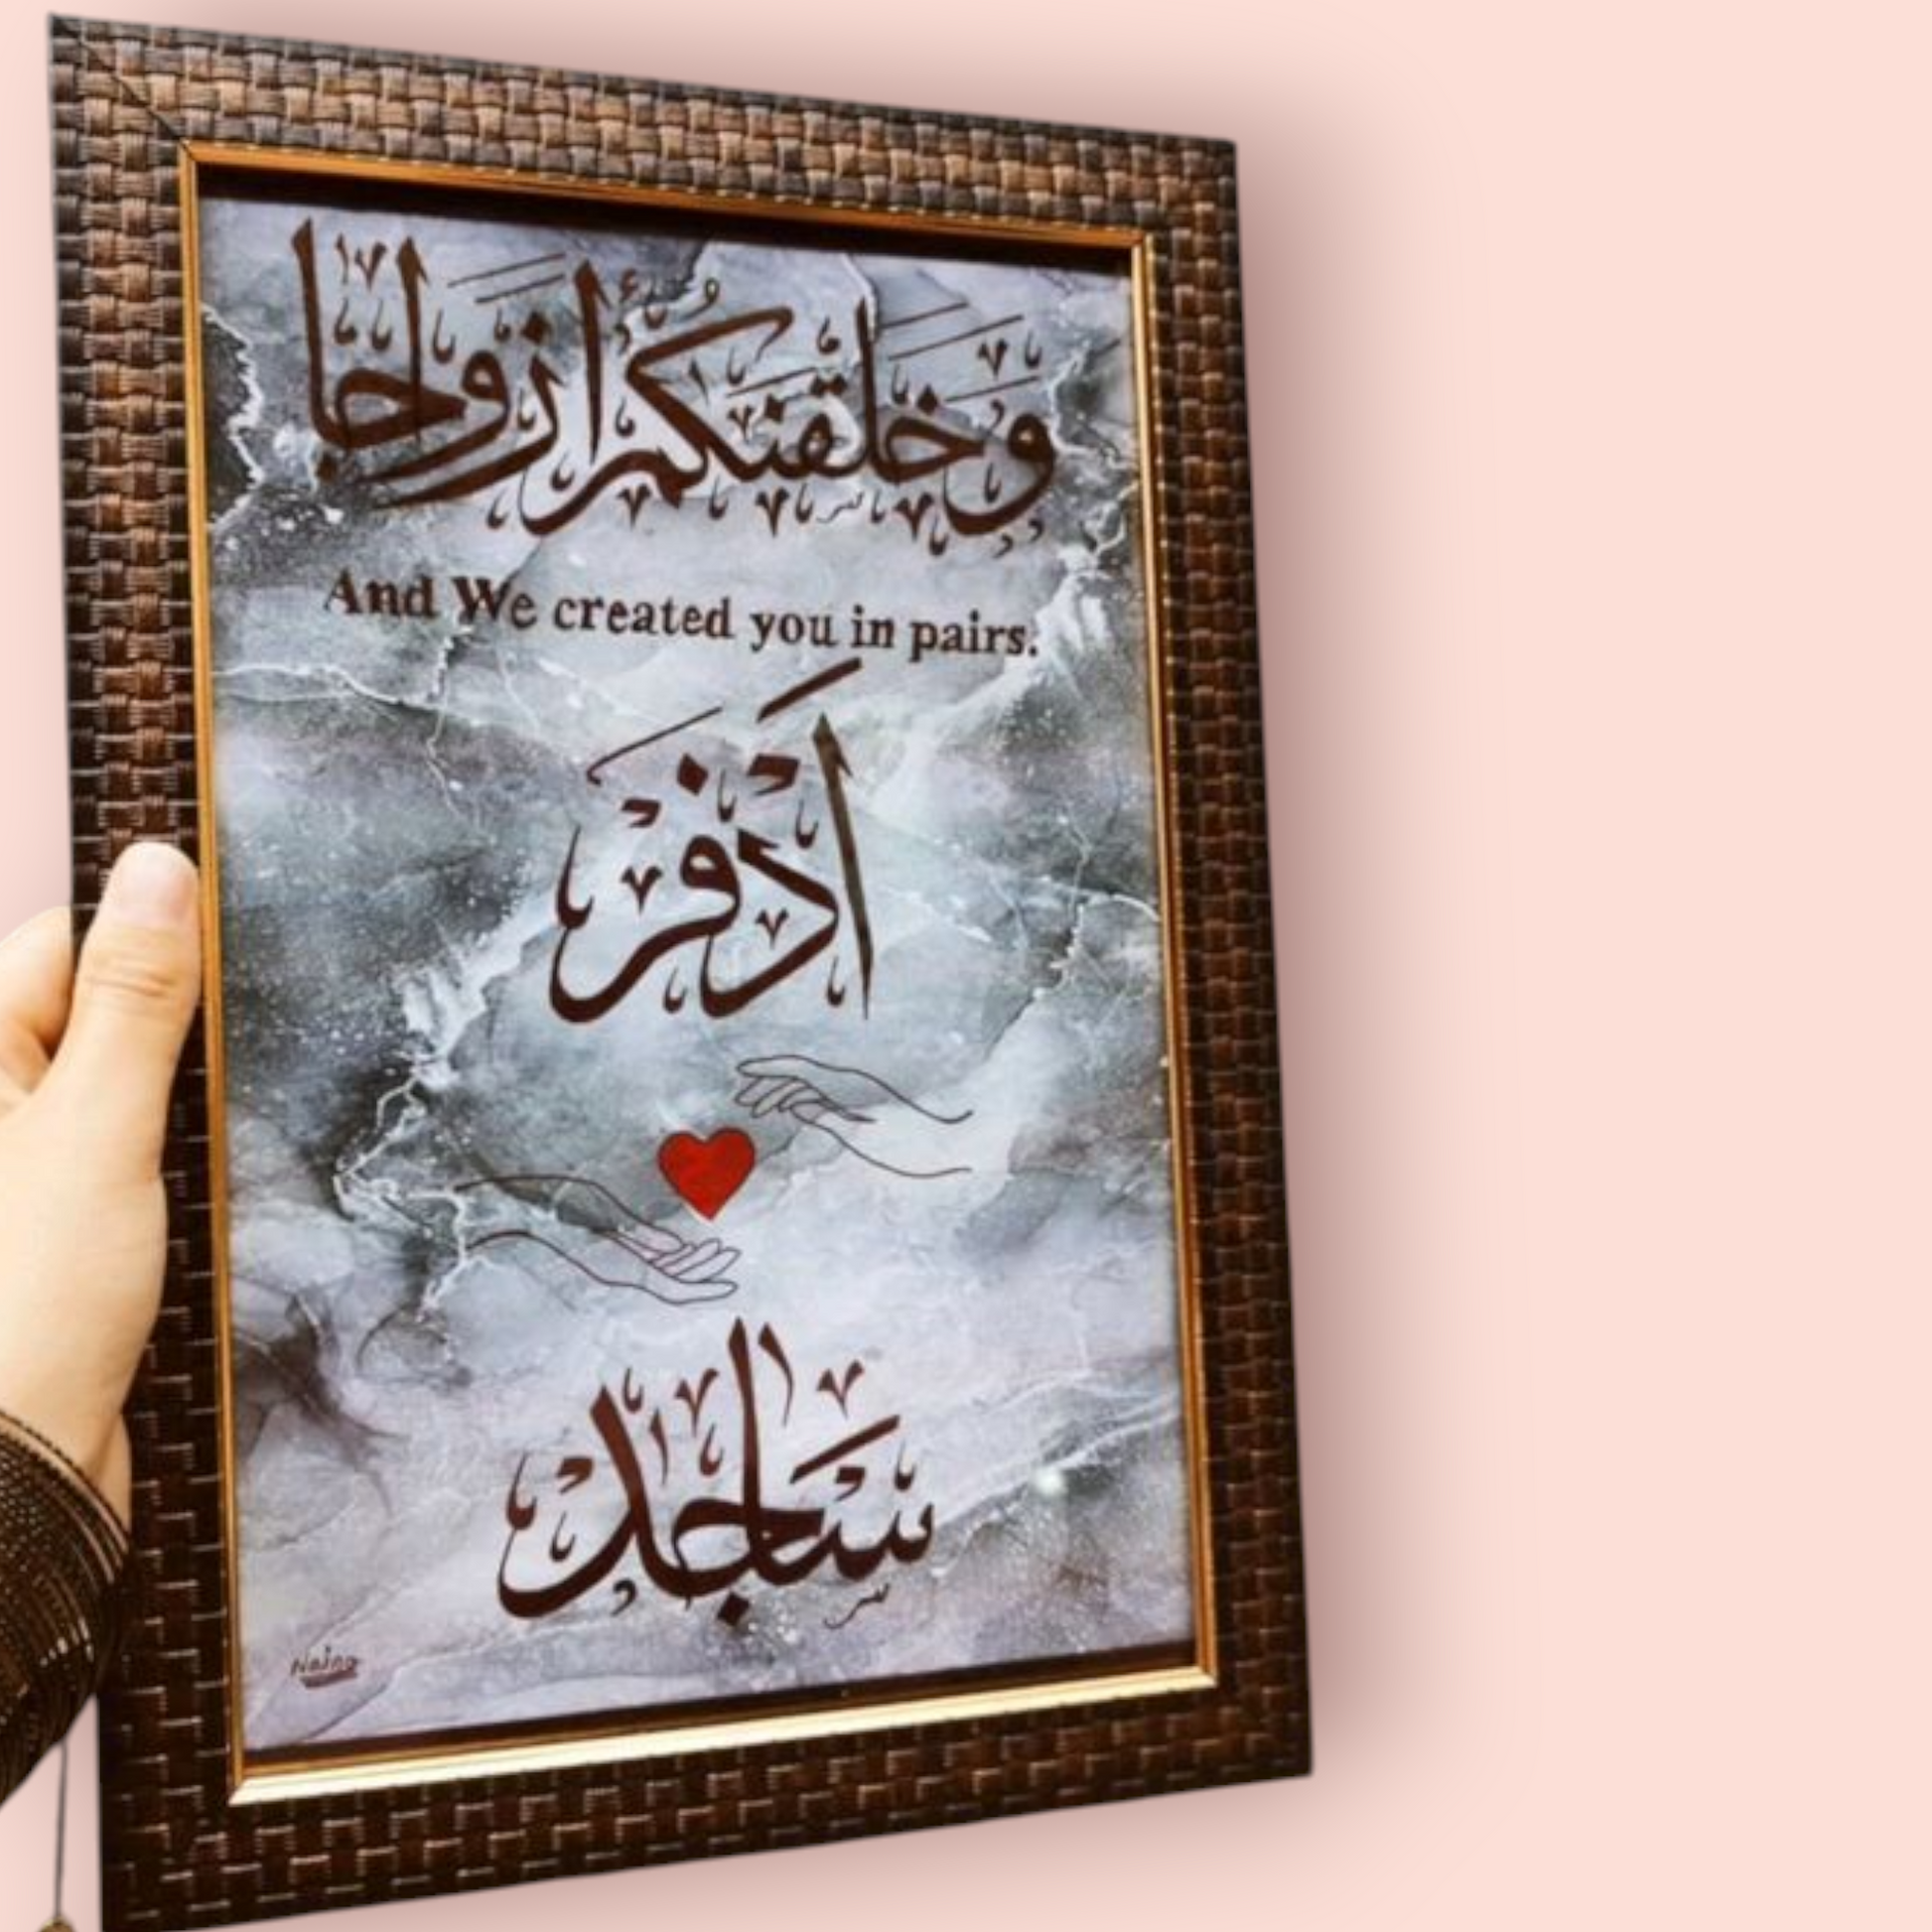 وَخَلَقْنَكُمْ أَزْوَاجًا
And We created you in pairs.
اَذفَر
سَاجِد
Naina